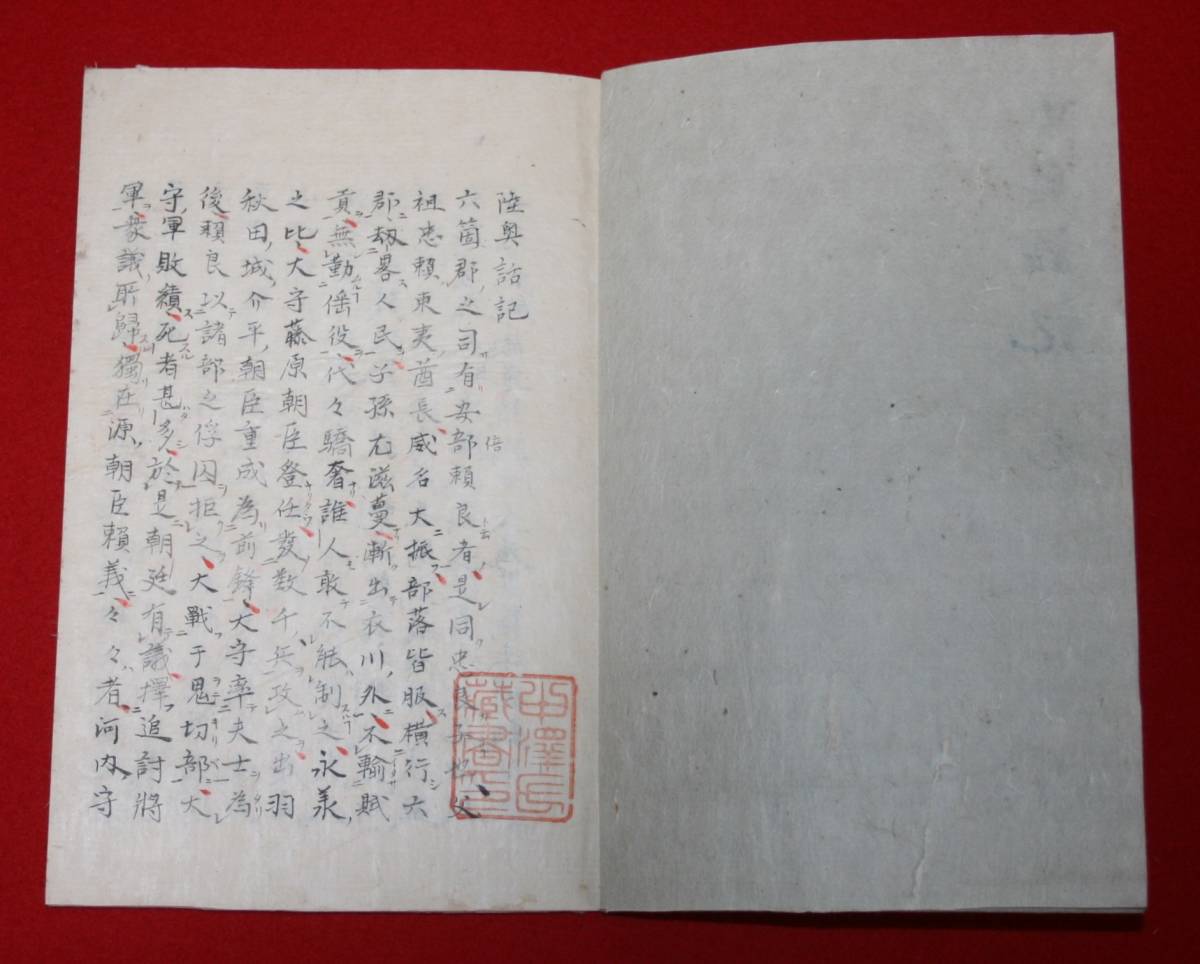 陸奥話記
六箇郡之司有安部頼良者是同忠良子也父
倍
祖忠頼東夷酋長威名大振部落皆服横行六
郡劫畧人民子孫尤滋蔓漸出衣川外不輸賦
貢無勤徭役代々驕奢誰人敢不能制之永承
之比大守藤原朝臣登任發数千兵攻之出羽
秋田城介平朝臣重成為前鋒大守率夫士為
後頼良以諸部之俘囚拒之大戰于鬼切部大
守軍敗績死者甚多於是朝廷有議擇追討將
軍衆議所歸獨在源朝臣頼義々々者河内守